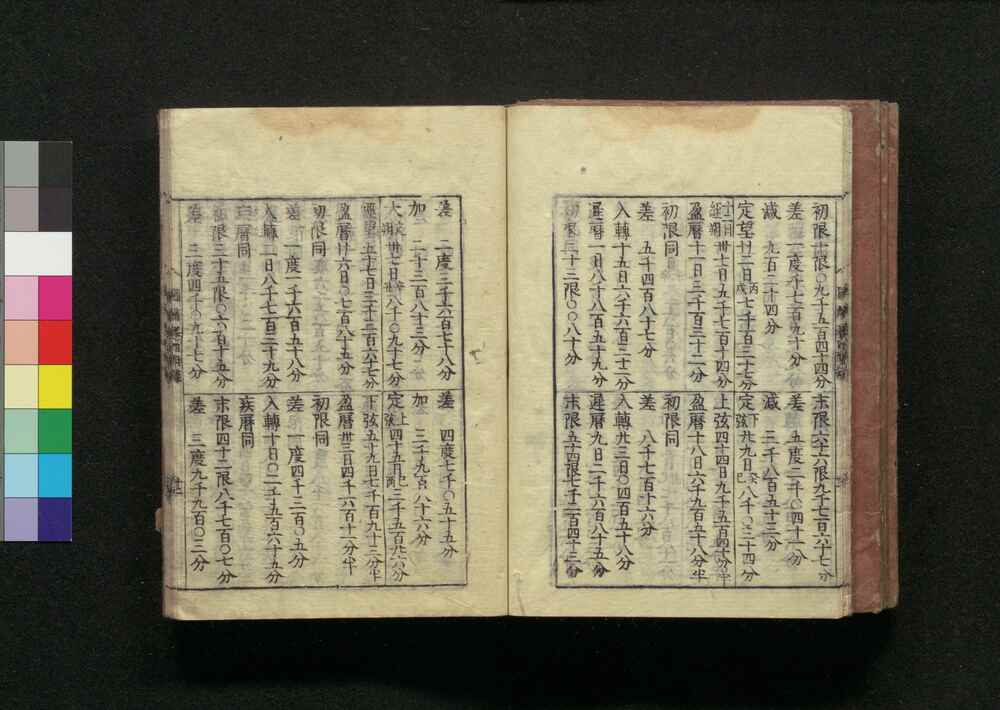 初限十限〇九十五百四十四分
差 一度千七百九十分
減 九百二十四分
定望廿二日丙戌七千百三十七分
十一月經朔卅七日五千七百十四分
盈曆十一日三千一百三十二分
初限同
差 五千四百八十七分
入轉十五日六千六百三十二分
遲曆一日八千八百五十九分
初限二十二限〇〇八十分
末限六十六限九千七百六十七分
差 五度二千〇四十一分
減 三千八百五十三分
定下弦廿九日癸巳八千〇三十四分
上弦四十四日九千五百四十分半
盈曆十八日六千九百五十八分半
初限同
差 八千七百十六分
入轉廿三日〇四百五十八分
遲曆九日二千六百八十五分
末限五十四限七千二百四十三分
差 二度三千六百七十八分
加 二千三百八十三分
大定朔卅七日八千〇九十七分
經望五十七日三千三百六十七分
盈曆廿六日〇七百八十五分
初限同
差 一度一千六百五十八分
入轉一日八千七百三十九分
疾曆同
初限二十五限〇六百十五分
差 三度四千〇九十七分
差 四度七千〇五十五分
加 三千九百八十六分
定上弦四十五日三千五百廿六分
下弦五十九日七千百九十三分半
盈曆卅三日四千六百十一分半
初限同
差 一度四千三百〇五分
入轉十日〇二千五百六十五分
疾曆同
末限四十二限八千七百〇七分
差 三度九千九百〇三分